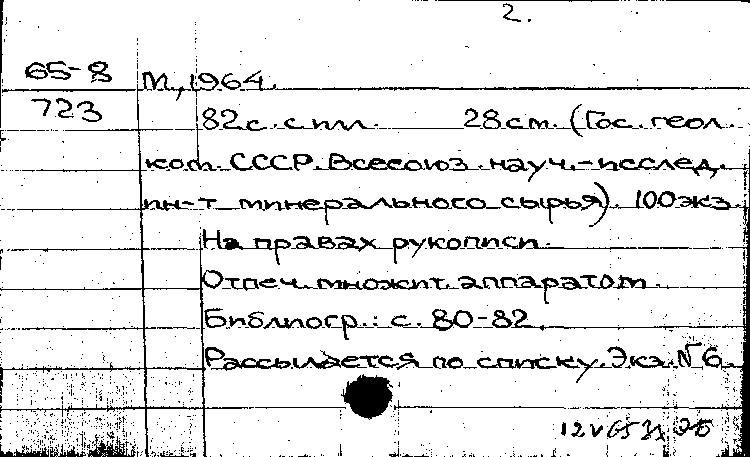 2.
65-8 М., 1964.
723 82с. с ил. 28см. (Гос. геол.
ком. СССР. Всесоюз. науч.-исслед.
ин-т минерального сырья). 100экз.
На правах рукописи.
Отпеч. множит. аппаратом.
Библиогр.: с. 80-82.
Рассылается по списку. Экз. №6.